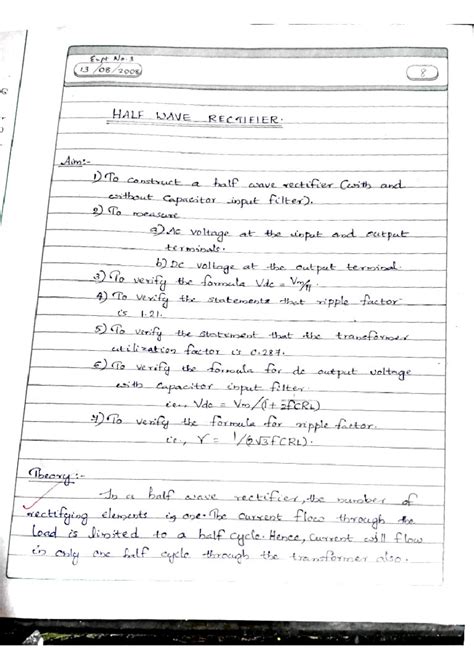 Expt No. 3
13/08/2008
8
HALF WAVE RECTIFIER.
Aim:-
1) To construct a half wave rectifier (with and
without capacitor input filter).
2) To measure
a) AC voltage at the input and output
terminals.
b) DC voltage at the output terminal.
3) To verify the formula Vdc = Vm/π
4) To verify the statements that ripple factor
is 1.21.
5) To verify the statement that the transformer
utilization factor is 0.287.
6) To verify the formula for dc output voltage
with capacitor input filter.
ie., Vdc = Vm/(1+ 2fCRL)
7) To verify the formula for ripple factor.
ie., γ = 1/(2√3fCRL).
Theory:-
In a half wave rectifier, the number of
rectifying elements is one. The current flow through the
load is limited to a half cycle. Hence, current will flow
in only one half cycle through the transformer also.